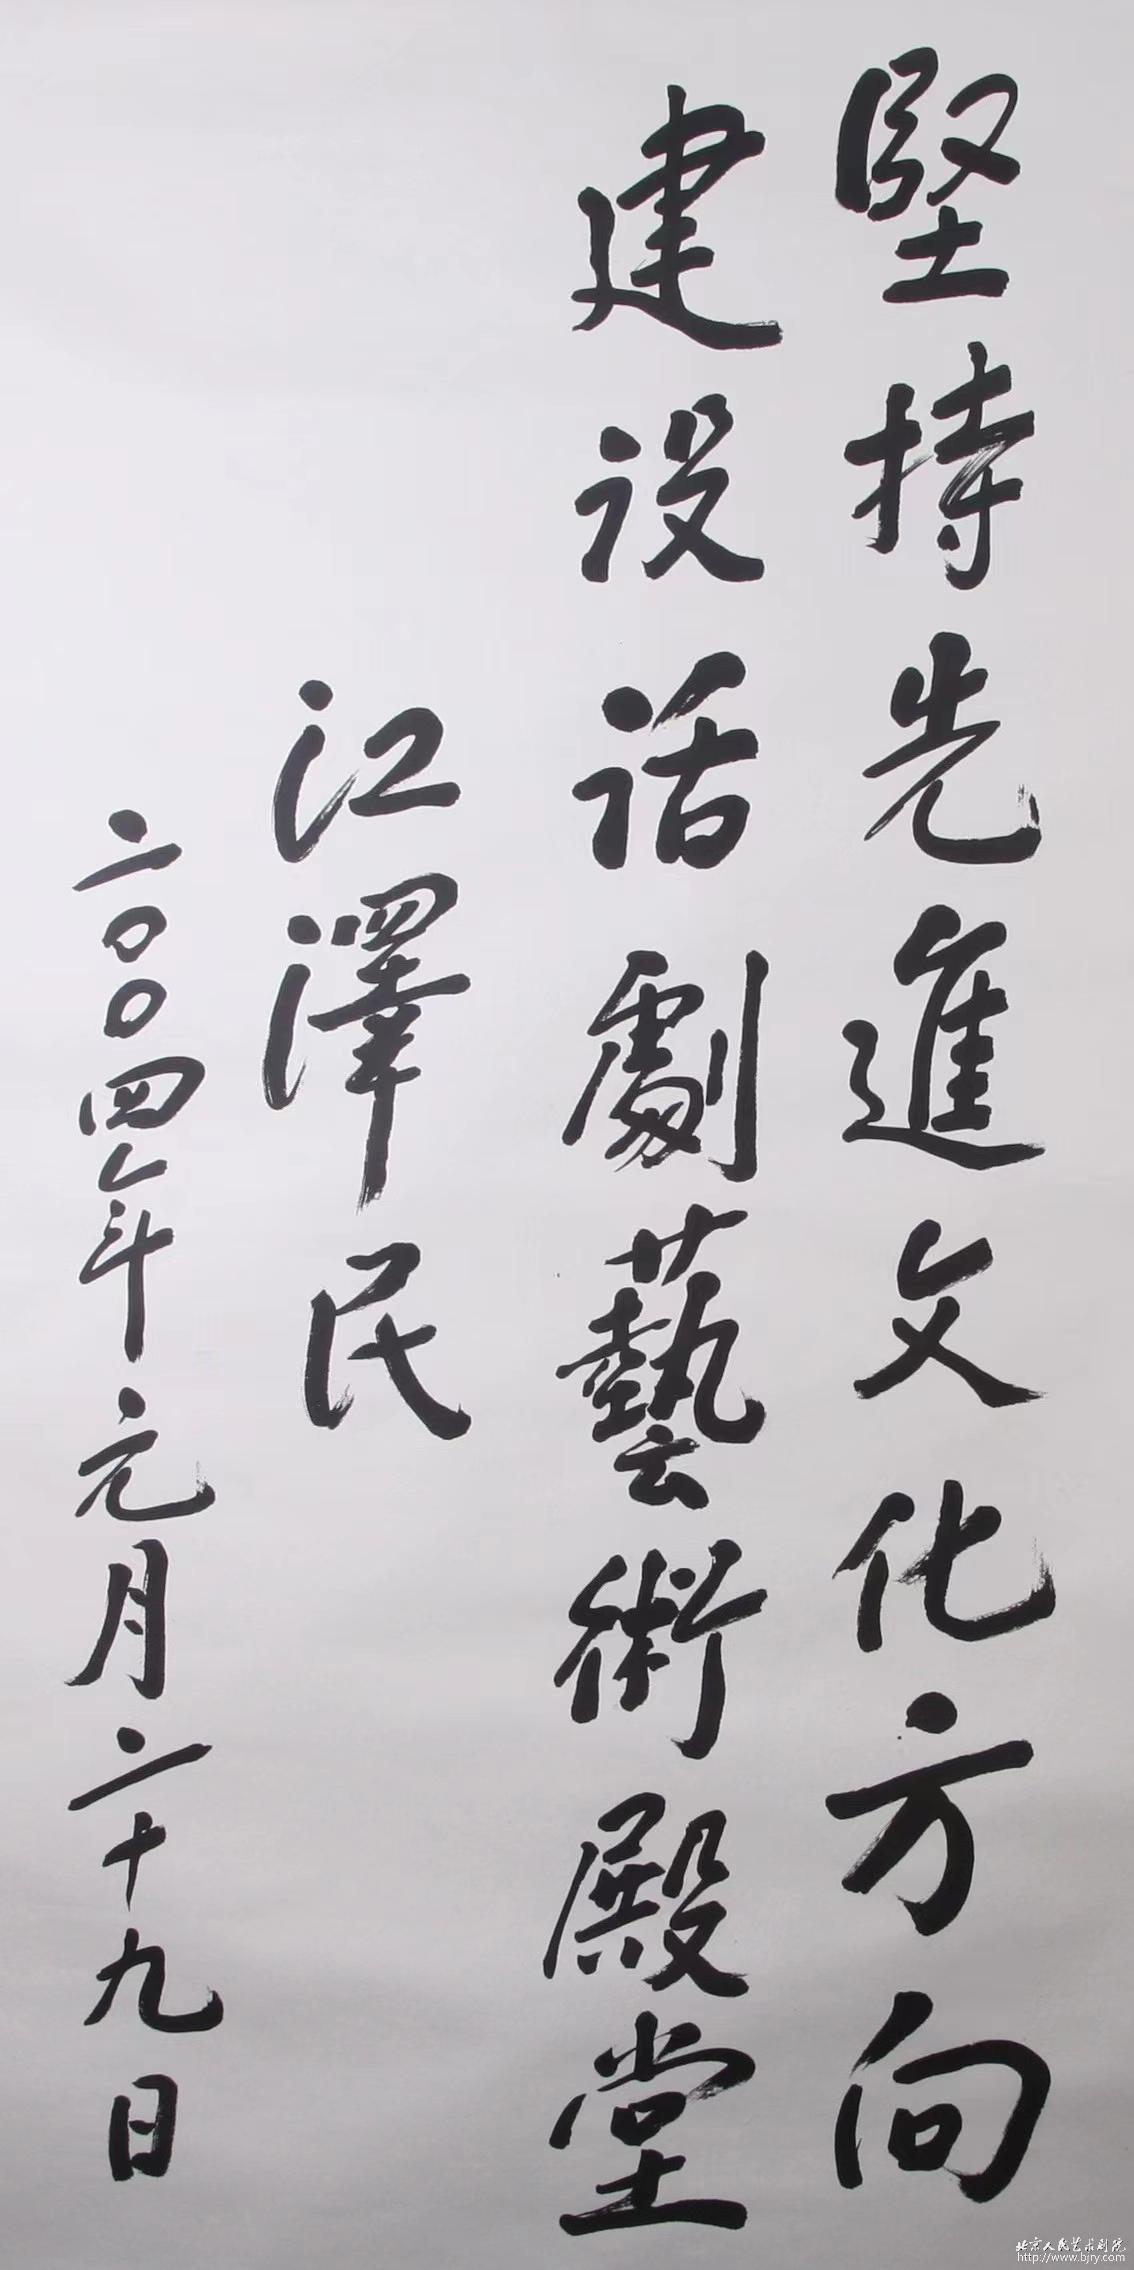 堅持先進文化方向
建设话劇藝術殿堂
江澤民
二〇〇四年元月二十九日
北京人民艺术剧院
http://www.bjry.com